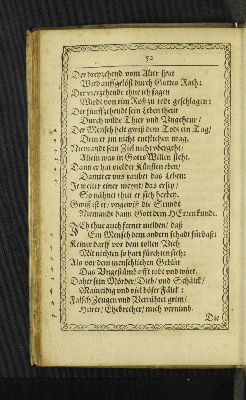 50
Der dreyzehend vom Alter spat
Wird auffgelöst durch Gottes Rath:
Der vierzehende thue ich sagen
Wirdt von eim Roß zu todt geschlagen:
Der fünffzehendt sein Leben thewr
Durch wilde Thier und Ungehewr/
Der Mensch helt gwiß dem Todt ein Tag/
Dem er jm nicht entfliehen mag.
Niemandt sein Ziel nicht ubergeht/
Allein was in Gottes Willen steht.
Dann er hat viel der Künsten eben/
Damit er uns raubet das Leben:
Je weiter einer meynt das er sey/
So nähner thut er sich herbey.
Gwiß ist er/ ungewiß die Stundt
Niemandt dann Gott dem HErren kundt.
Ich thue auch ferner melden/ daß
Ein Mensch dem andern schadt fürbaß:
Keiner darff vor dem tollen Vieh
Mit nichten so hart fürchten sich:
Als vor dem menschlichen Geblüt
Das Ungestümb offt tobt und wüt.
Daher sein Mörder/ Dieb/ und Schälck/
Maineidig und viel böser Fälck:
Falsch Zeugen und Verrähter grim/
Hurer/ Ehebrecher/ mich vernimb.
Die